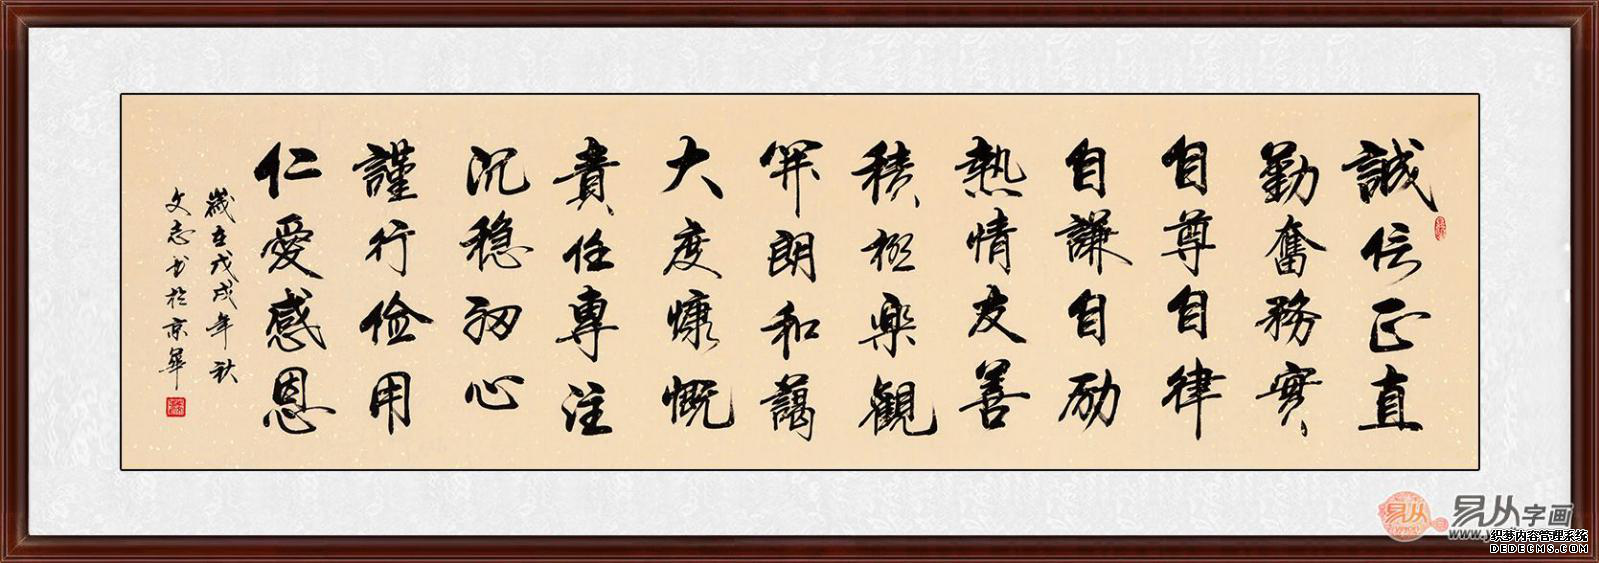 誠信正直
勤奮務實
自尊自律
自謙自励
熱情友善
積极樂觀
開朗和藹
大度慷慨
責任專注
沉稳细心
謹行俭用
仁愛感恩
歲在戊戌年秋
文志书於京華
易从字画
织梦内容管理系统
DEDECMS.COM